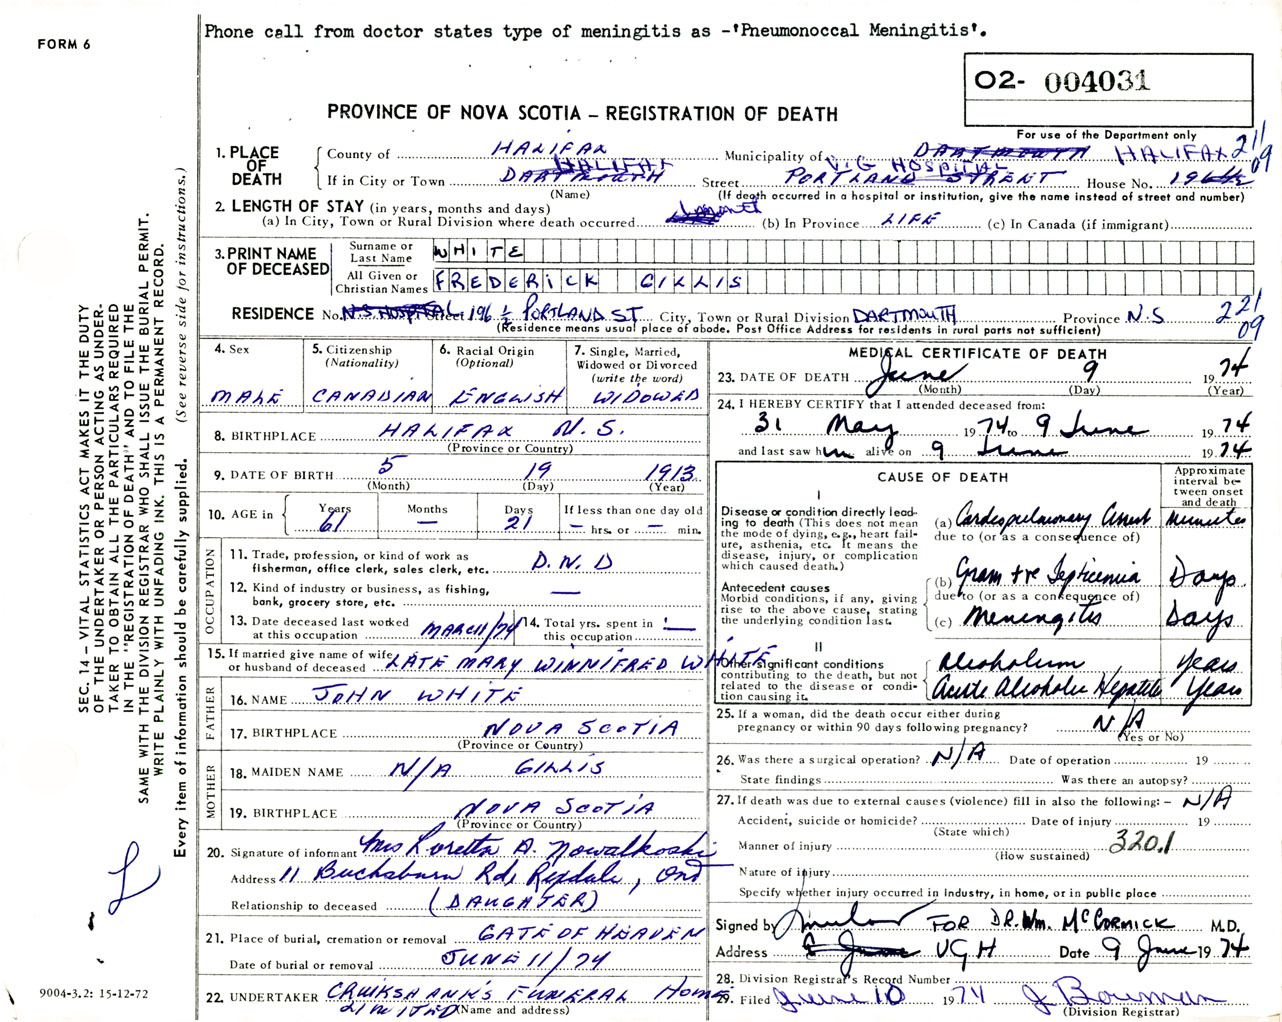 Phone call from doctor states type of meningitis as -'Pneumonoccal Meningitis'.
FORM 6
O2- 004031
PROVINCE OF NOVA SCOTIA – REGISTRATION OF DEATH
For use of the Department only
1. PLACE OF DEATH
County of HALIFAX Municipality of DARTMOUTH HALIFAX 21/09
If in City or Town DARTMOUTH HALIFAX Street PORTLAND STREET V.G HOSPITAL House No. 196½
(Name) (If death occurred in a hospital or institution, give the name instead of street and number)
2. LENGTH OF STAY (in years, months and days)
(a) In City, Town or Rural Division where death occurred (b) In Province LIFE (c) In Canada (if immigrant)
3. PRINT NAME OF DECEASED
Surname or Last Name WHITE
All Given or Christian Names FREDERICK GILLIS
RESIDENCE No. N.S HOSPITAL Street 196 ½ PORTLAND ST City, Town or Rural Division DARTMOUTH Province N.S 221/09
(Residence means usual place of abode. Post Office Address for residents in rural parts not sufficient)
4. Sex
MALE
5. Citizenship
(Nationality)
CANADIAN
6. Racial Origin
(Optional)
ENGLISH
7. Single, Married,
Widowed or Divorced
(write the word)
WIDOWED
8. BIRTHPLACE HALIFAX N.S.
(Province or Country)
9. DATE OF BIRTH 5 19 1913
(Month) (Day) (Year)
10. AGE in
Years Months Days If less than one day old
61 — 21 — hrs. or — min.
OCCUPATION
11. Trade, profession, or kind of work as
fisherman, office clerk, sales clerk, etc. D.N.D
12. Kind of industry or business, as fishing,
bank, grocery store, etc. —
13. Date deceased last worked
at this occupation MARCH/74
14. Total yrs. spent in
this occupation —
15. If married give name of wife
or husband of deceased LATE MARY WINNIFRED WHITE
FATHER
16. NAME JOHN WHITE
17. BIRTHPLACE NOVA SCOTIA
(Province or Country)
MOTHER
18. MAIDEN NAME N/A GILLIS
19. BIRTHPLACE NOVA SCOTIA
(Province or Country)
20. Signature of informant Mrs Loretta A. Nowalkoski
Address 11 Buchsburn Rd, Rexdale, Ont
Relationship to deceased (DAUGHTER)
21. Place of burial, cremation or removal GATE OF HEAVEN
Date of burial or removal JUNE 11/74
22. UNDERTAKER CRUIKSHANK'S FUNERAL HOME
LIMITED (Name and address)
MEDICAL CERTIFICATE OF DEATH
23. DATE OF DEATH June 9 1974
(Month) (Day) (Year)
24. I HEREBY CERTIFY that I attended deceased from:
31 May 1974 to 9 June 1974
and last saw him alive on 9 June 1974
CAUSE OF DEATH
Approximate interval between onset and death
I
Disease or condition directly leading to death (This does not mean the mode of dying, e.g., heart failure, asthenia, etc. It means the disease, injury, or complication which caused death.)
(a) Cardiopulmonary Arrest Minutes
due to (or as a consequence of)
Antecedent causes
Morbid conditions, if any, giving rise to the above cause, stating the underlying condition last.
(b) Gram +ve Septicemia Days
due to (or as a consequence of)
(c) Meningitis Days
II
Other significant conditions
contributing to the death, but not related to the disease or condition causing it.
Alcoholism Years
Acute Alcoholic Hepatitis Years
25. If a woman, did the death occur either during
pregnancy or within 90 days following pregnancy? N/A
(Yes or No)
26. Was there a surgical operation? N/A Date of operation 19
State findings Was there an autopsy?
27. If death was due to external causes (violence) fill in also the following: – N/A
Accident, suicide or homicide? Date of injury 19
(State which)
Manner of injury 320.1
(How sustained)
Nature of injury
Specify whether injury occurred in industry, in home, or in public place
Signed by FOR DR. Wm. McCORMICK M.D.
Address VGH Date 9 June 1974
28. Division Registrar's Record Number
29. Filed June 10 1974 J Bowman
(Division Registrar)
SEC. 14 – VITAL STATISTICS ACT MAKES IT THE DUTY
OF THE UNDERTAKER OR PERSON ACTING AS UNDER-
TAKER TO OBTAIN ALL THE PARTICULARS REQUIRED
IN THE "REGISTRATION OF DEATH" AND TO FILE THE
SAME WITH THE DIVISION REGISTRAR WHO SHALL ISSUE THE BURIAL PERMIT.
WRITE PLAINLY WITH UNFADING INK. THIS IS A PERMANENT RECORD.
Every item of information should be carefully supplied. (See reverse side for instructions.)
9004-3.2: 15-12-72